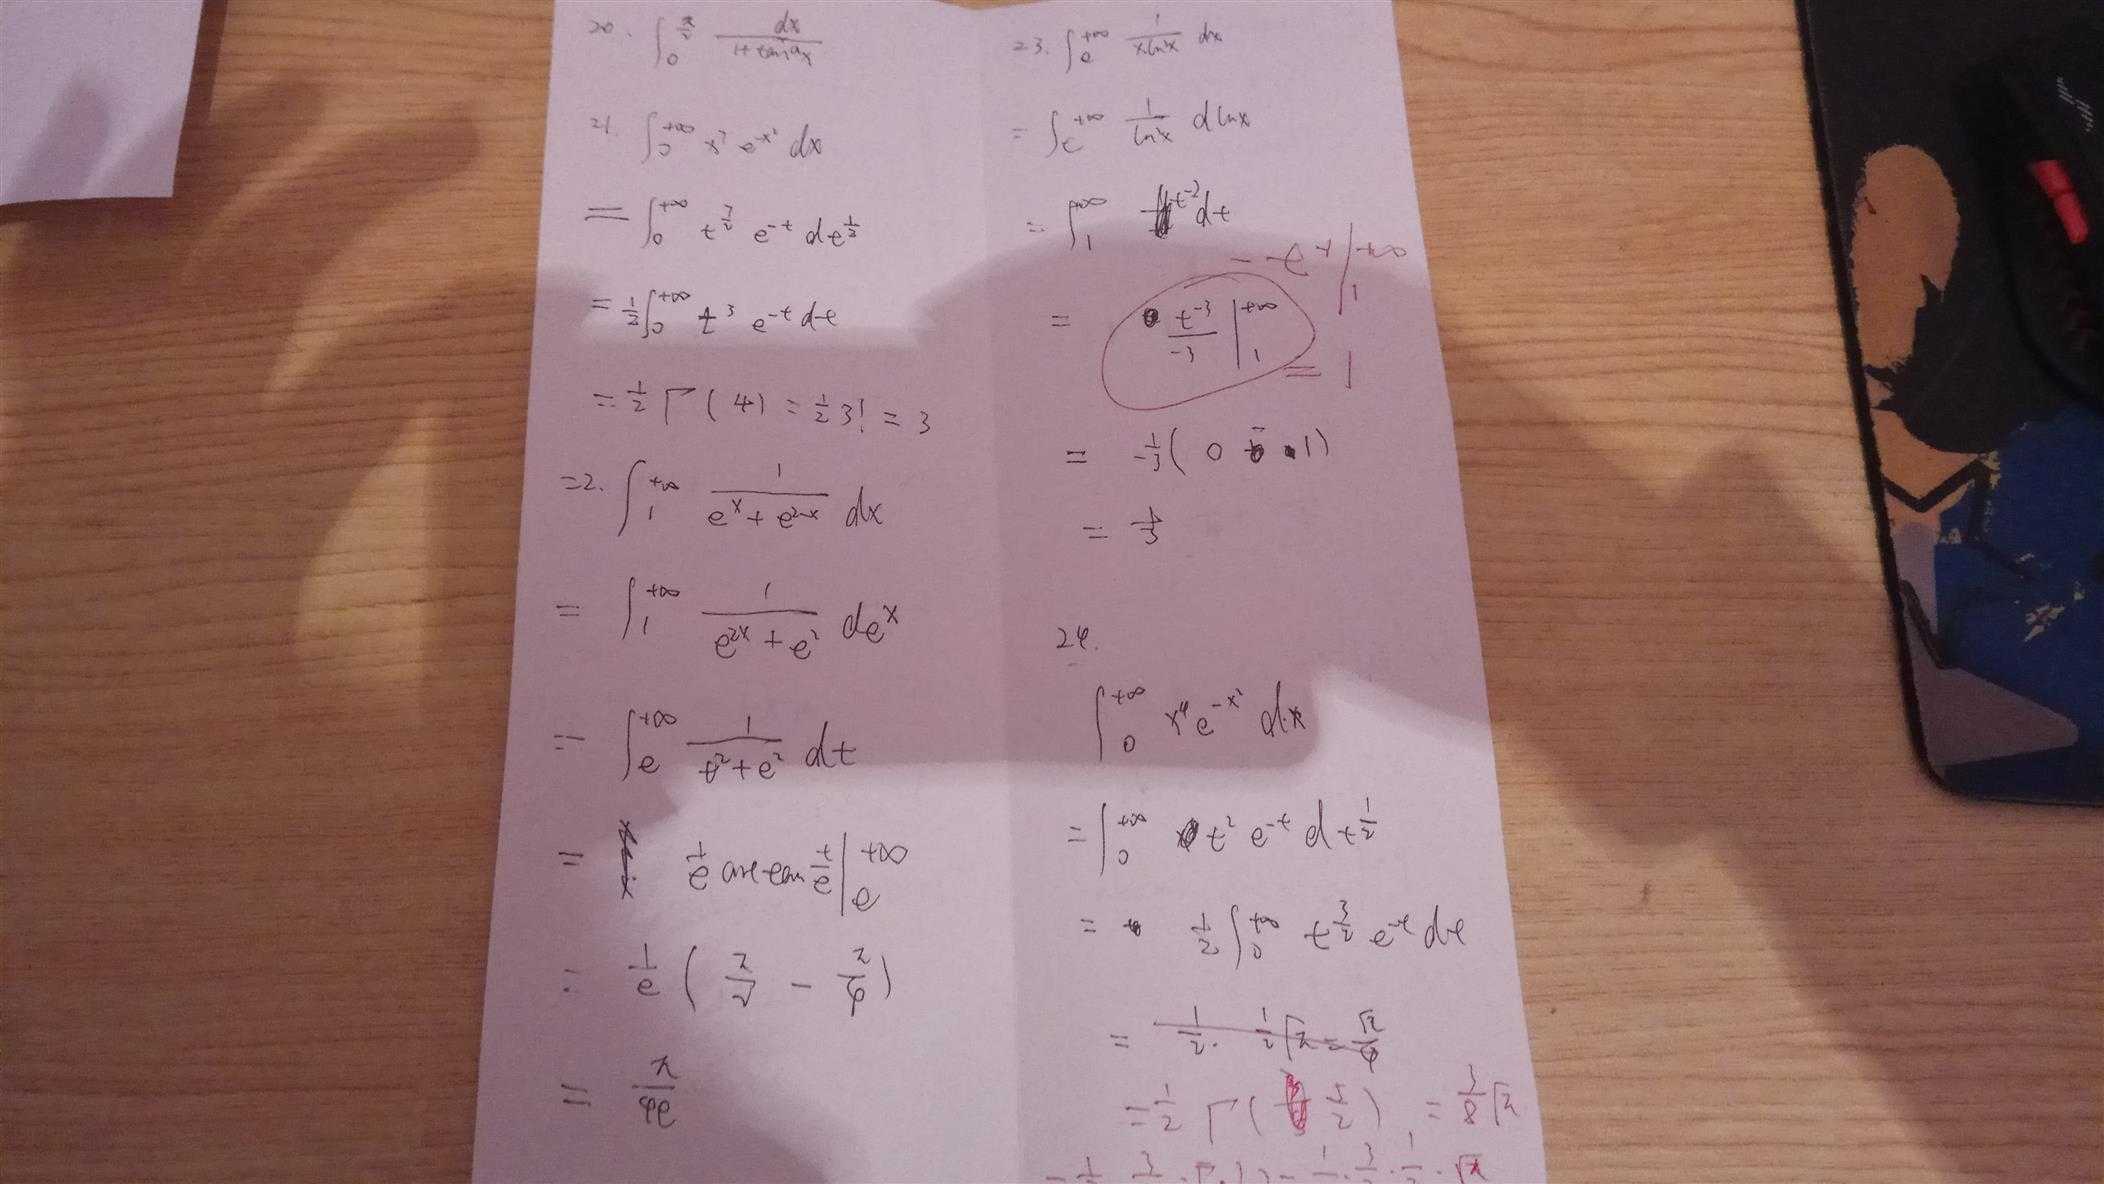 20. ∫_0^{π/2} dx/(1+tan^a x)
21. ∫_0^{+∞} x^7 e^{-x²} dx
= ∫_0^{+∞} t^{7/2} e^{-t} dt^{1/2}
= 1/2 ∫_0^{+∞} t^3 e^{-t} dt
= 1/2 Γ(4) = 1/2 3! = 3
22. ∫_1^{+∞} 1/(e^x + e^{2-x}) dx
= ∫_1^{+∞} 1/(e^{2x} + e^2) de^x
= ∫_e^{+∞} 1/(t² + e²) dt
= 1/e arctan t/e |_e^{+∞}
= 1/e (π/2 - π/4)
= π/4e
23. ∫_e^{+∞} 1/(x ln²x) dx
= ∫_e^{+∞} 1/(ln²x) d lnx
= ∫_1^{+∞} t^{-2} dt
- t^{-1} |_1^{+∞}
= t^{-3}/-3 |_1^{+∞}
= 1
= -1/3 (0 - 1)
= 1/3
24.
∫_0^{+∞} x^4 e^{-x²} dx
= ∫_0^{+∞} t² e^{-t} dt^{1/2}
= 1/2 ∫_0^{+∞} t^{3/2} e^{-t} dt
= 1/2 · 1/2 √π = √π/4
= 1/2 Γ(5/2) = 3/8 √π